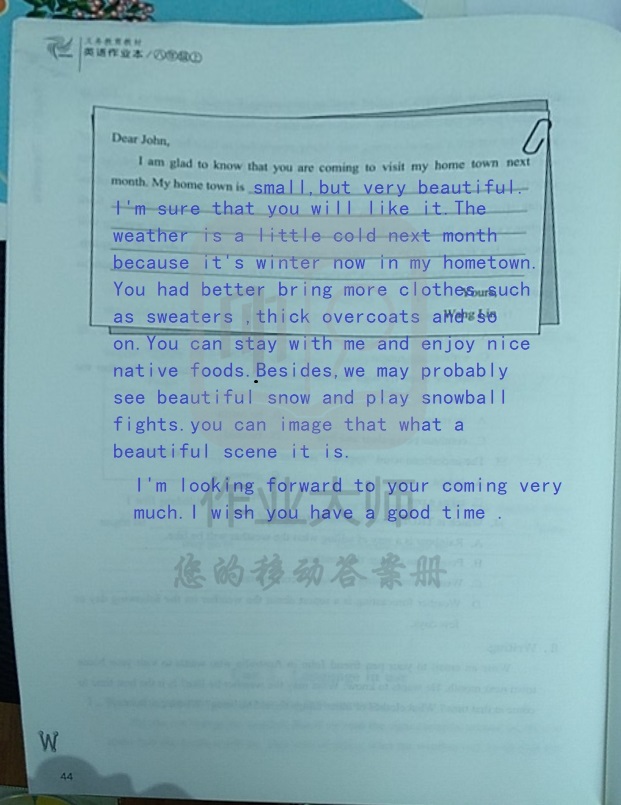 义务教育教材
英语作业本/八年级上
Dear John,
I am glad to know that you are coming to visit my home town next
month. My home town is small,but very beautiful.
I'm sure that you will like it.The
weather is a little cold next month
because it's winter now in my hometown.
You had better bring more clothes such
Yours,
as sweaters ,thick overcoats and so
Wang Lin
on.You can stay with me and enjoy nice
native foods.Besides,we may probably
see beautiful snow and play snowball
fights.you can image that what a
beautiful scene it is.
I'm looking forward to your coming very
much.I wish you have a good time .
作业大师
您的移动答案册
W
44